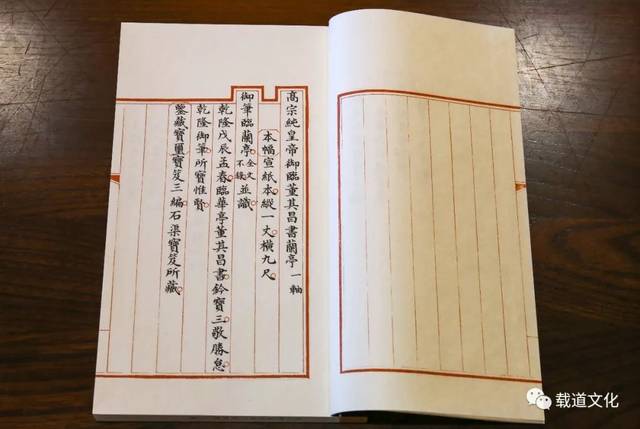 高宗純皇帝御臨董其昌書蘭亭一軸
本幅宣紙本縱一丈橫九尺
御筆臨蘭亭全文不錄並識
乾隆戊辰孟春臨華亭董其昌書鈐寶三敬勝怠
乾隆御筆所寶惟賢
鑒藏寶璽寶笈三編石渠寶笈所藏
载道文化